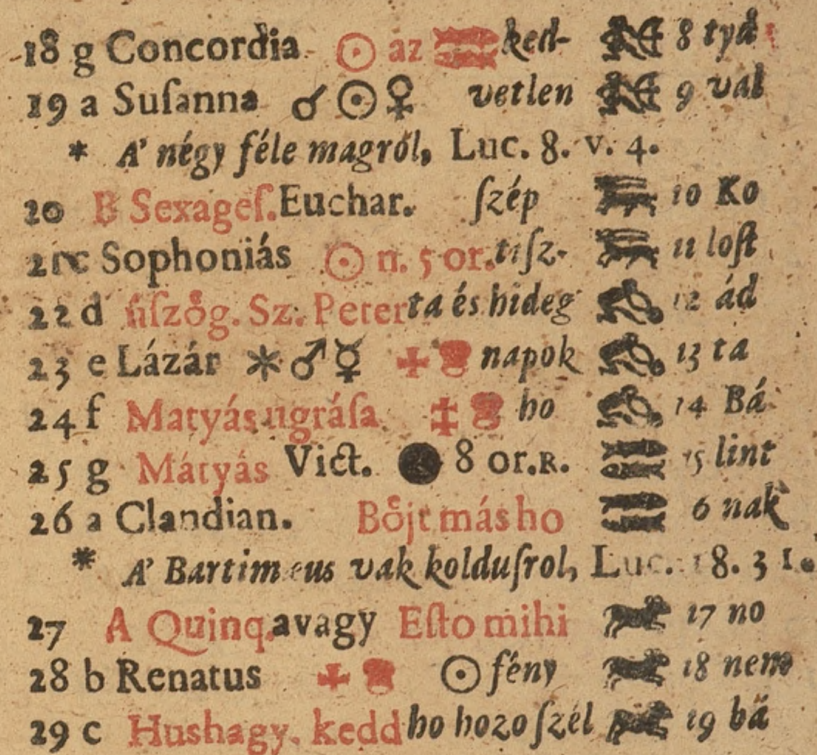 18 g Concordia ☉ az ked- 8 tyd
19 a Suſanna ☌ ☉ ♀ vetlen 9 val
* A' négy féle magról, Luc. 8. v. 4.
20 B Sexageſ. Euchar. ſzép 10 Ko
21 c Sophoniás ☉ n. 5 or. tiſz- 11 loſt
22 d üſzög. Sz. Peter ta és hideg 12 ád
23 e Lázár ⚹ ♂ ☿ napok 13 ta
24 f Matyás ugráſa ho 14 Bá
25 g Mátyás Vict. ● 8 or. R. 15 lint
26 a Clandian. Bőjt más ho 6 nak
* A' Bartimeus vak kolduſrol, Luc. 18. 31.
27 A Quinq. avagy Eſto mihi 17 no
28 b Renatus ☉ fény 18 nem
29 c Hushagy. kedd ho hozo ſzél 19 bá